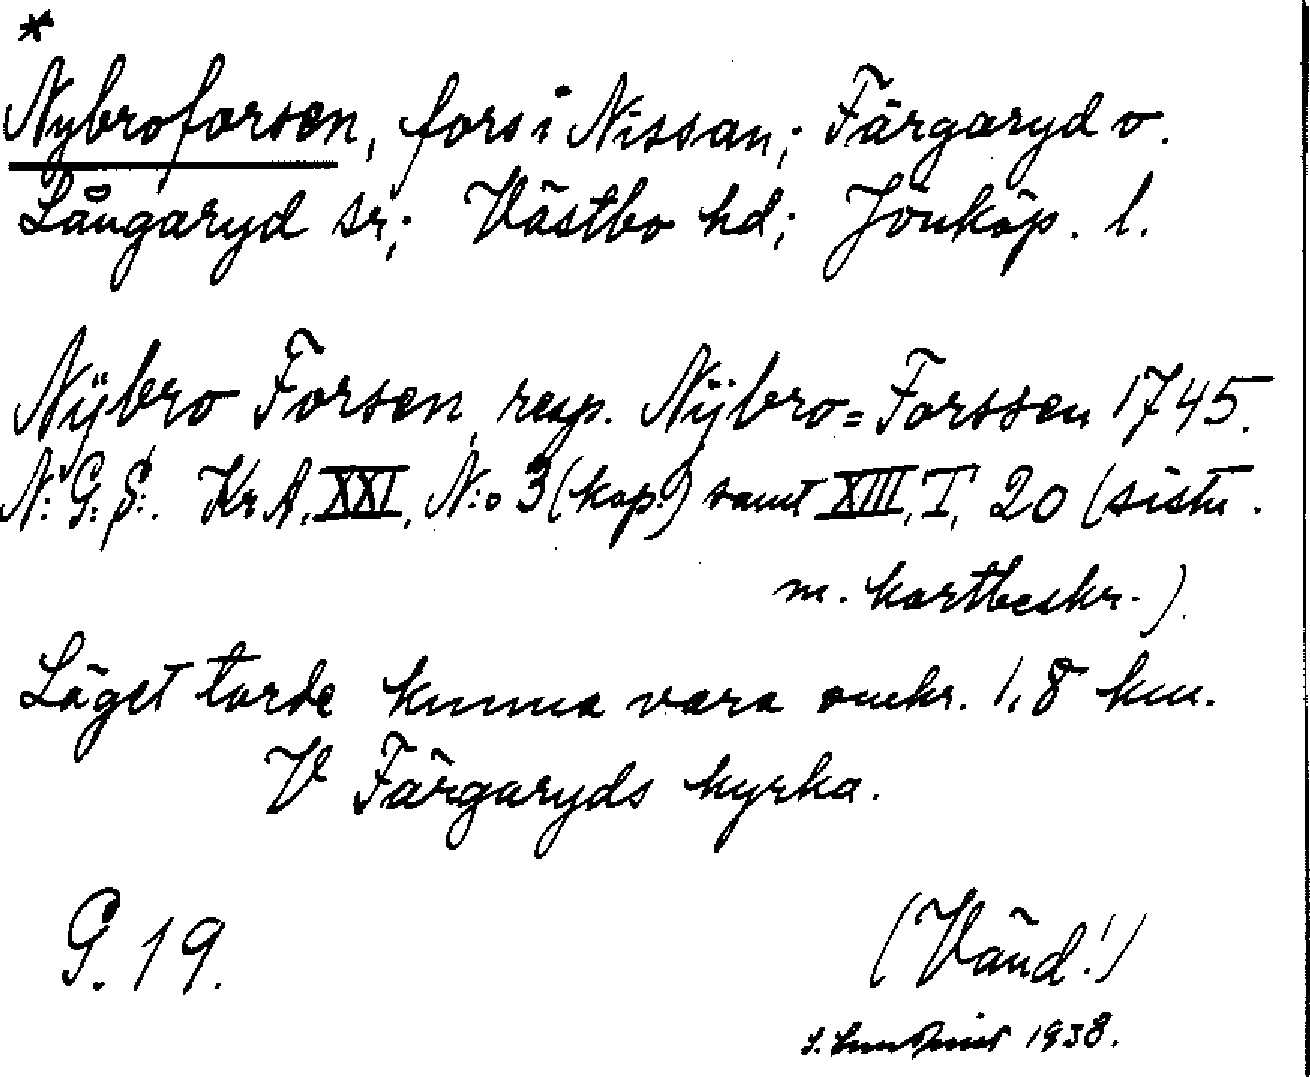 *
Nybroforsen, fors i Nissan; Färgaryd o.
Långaryd sr; Västbo hd; Jönköp. l.
Nÿbro Forsen, resp. Nÿbro=Forssen 1745.
N: G: S:. Kr A, XXI, N:o 3 (kop.) samt XIII, I, 20 (sistn.
m. kartbeskr.).
Läget torde kunna vara omkr. 1,8 km.
V Färgaryds kyrka.
G. 19.
(Vänd!)
1938.